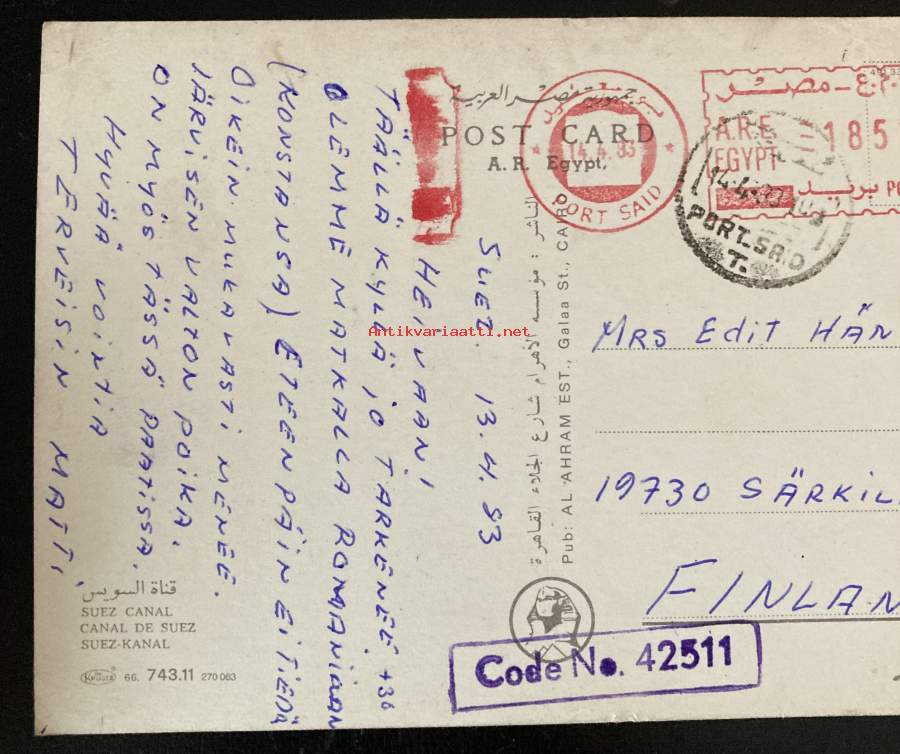 جمهورية مصر العربية
POST CARD
A. R. Egypt.
بورسعيد
14.4.83
PORT SAID
مصر
A.R.E
EGYPT
185
بريد
PO
PORT-SAID
T.
SUEZ. 13.4.83
HEI VAAN!
TÄÄLLÄ KYLLÄ JO TARKENEE +36
OLEMME MATKALLA ROMANIAAN
(KONSTANSA) ETEENPÄIN EI TIEDÄ
OIKEIN MUKAVASTI MENEE.
JÄRVISEN VALTON POIKA,
ON MYÖS TÄSSÄ PAATISSA.
HYVÄÄ VOINTIA
TERVEISIN MATTI,
الناشر : مؤسسه الأهرام شارع الجلاء القاهرة
Pub: AL AHRAM EST., Galaa St., CAIRO
MRS EDIT HÄN
19730 SÄRKIL
FINLAN
قناة السويس
SUEZ CANAL
CANAL DE SUEZ
SUEZ-KANAL
Krüger 66. 743.11 270 083
Code No. 42511
Antikvariaatti.net